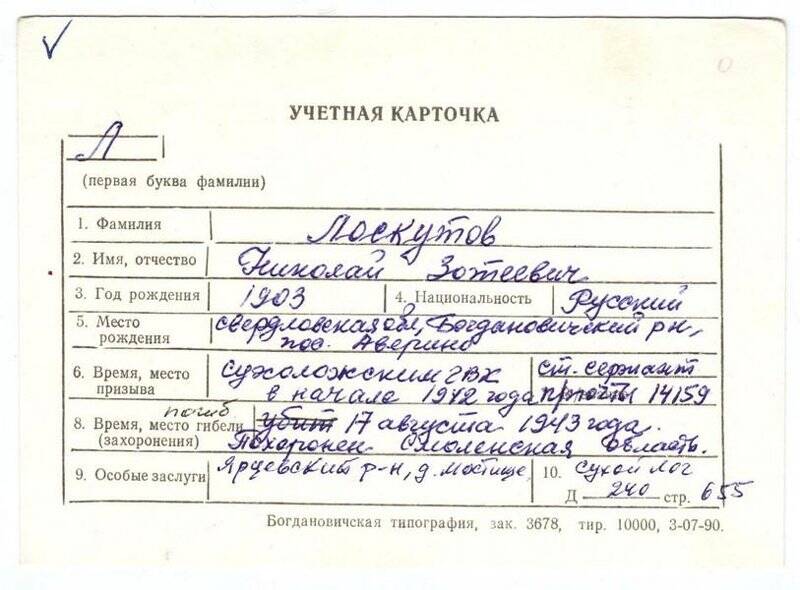 УЧЕТНАЯ КАРТОЧКА
Л
(первая буква фамилии)
1. Фамилия Лоскутов
2. Имя, отчество Николай Зотеевич
3. Год рождения 1903 4. Национальность Русский
5. Место рождения свердловская обл, Богдановичский р-н,
пос. Аверино
6. Время, место призыва Сухоложским ГВК ст. сержант
в начале 1942 года п/почты 14159
8. Время, место гибели (захоронения) погиб убит 17 августа 1943 года.
Похоронен Смоленская область.
9. Особые заслуги Ярцевский р-н, д. Мостище, 10. Сухой Лог
Д 240 стр. 655
Богдановичская типография, зак. 3678, тир. 10000, 3-07-90.